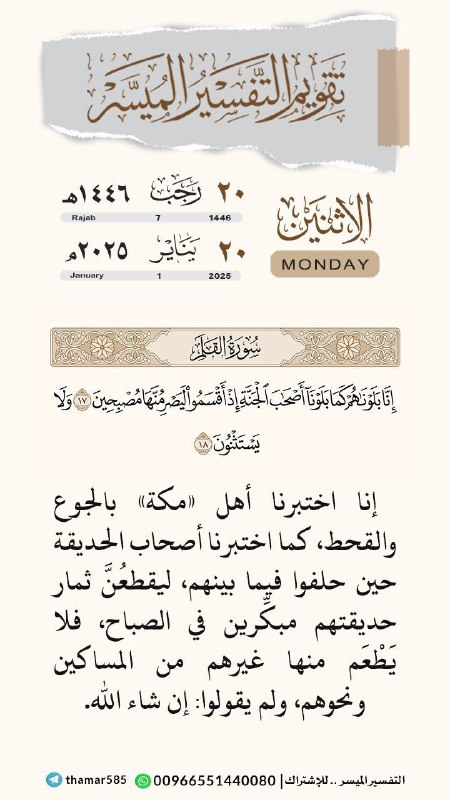 تقويم التفسير الميسر
الاثنين
MONDAY
٢٠ رجب ١٤٤٦هـ
Rajab 7 1446
٢٠ يناير ٢٠٢٥م
January 1 2025
سُورَةُ القَلَمِ
إِنَّا بَلَوْنَاهُمْ كَمَا بَلَوْنَا أَصْحَابَ الْجَنَّةِ إِذْ أَقْسَمُوا لَيَصْرِمُنَّهَا مُصْبِحِينَ ١٧ وَلَا
يَسْتَثْنُونَ ١٨
إنا اختبرنا أهل «مكة» بالجوع
والقحط، كما اختبرنا أصحاب الحديقة
حين حلفوا فيما بينهم، ليقطعُنَّ ثمار
حديقتهم مبكِّرين في الصباح، فلا
يَطْعَم منها غيرهم من المساكين
ونحوهم، ولم يقولوا: إن شاء الله.
التفسير الميسر .. للإشتراك | 00966551440080 thamar585